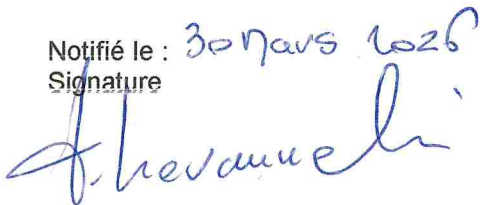 Notifié le : 30 Mars 2026
Signature